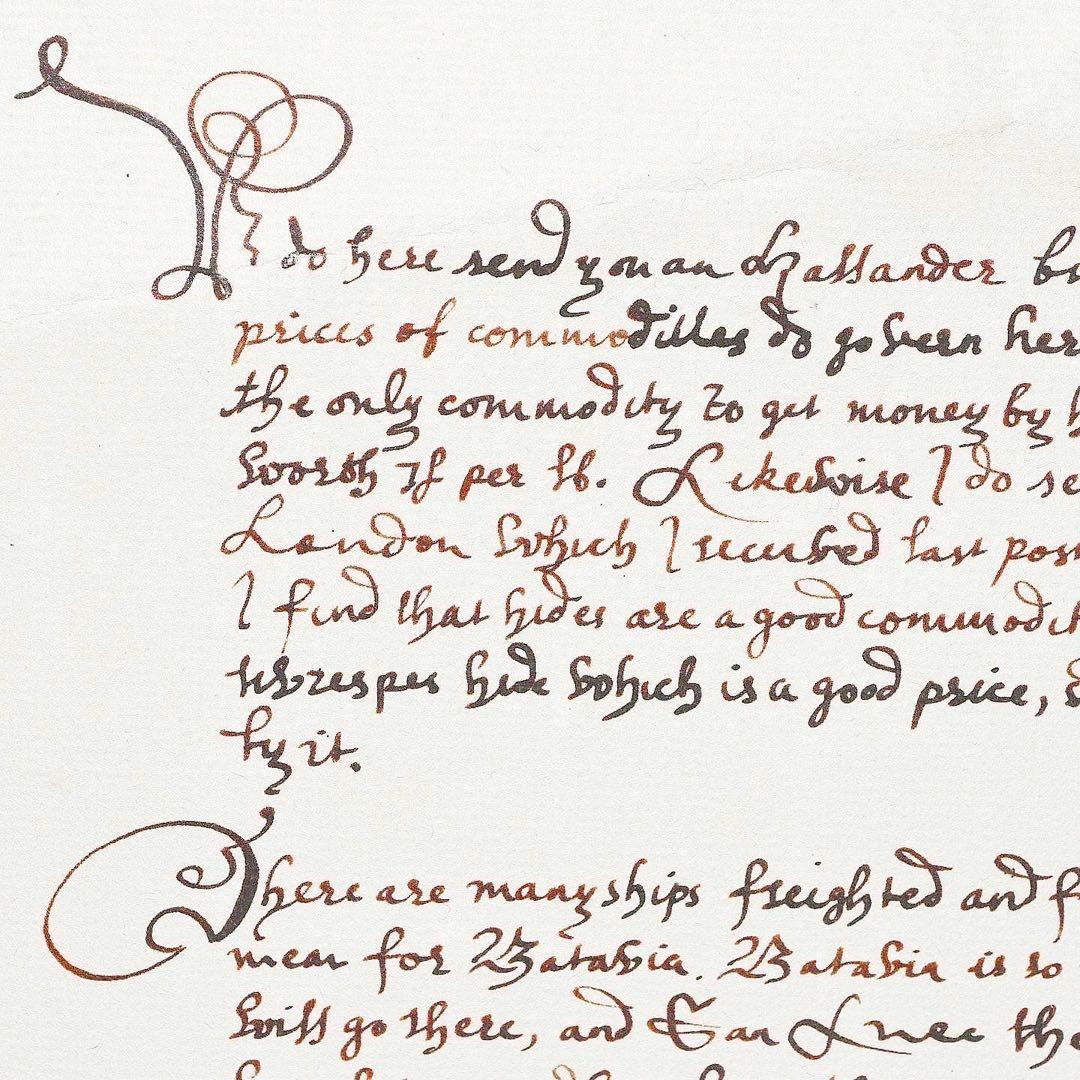 I do here send you an Hollander
prices of commodities do govern her
the only commodity to get money by
worth 7s per lb. Likewise I do se
London which I received last post
I find that hides are a good commodit
per hide which is a good price,
by it.
There are many ships freighted and f
mean for Batavia. Batavia is so
will go there, and San Luec the